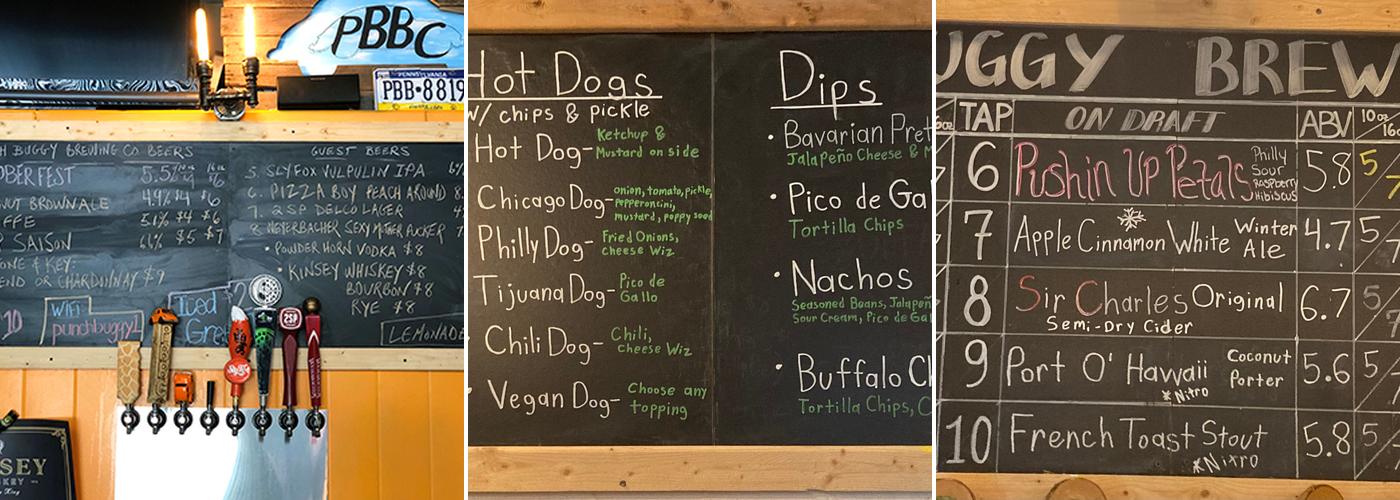 PBBC
PENNSYLVANIA
PBB•8819
H BUGGY BREWING CO. BEERS
OBERFEST 5.5% $6
NUT BROWN ALE 4.9% $4 $6
FFE 5.6% $4 $6
SAISON 6.6% $5 $7
ONE & KEY:
END OR CHARDONNAY $9
10
WiFi
punchbuggy1
Iced
GUEST BEERS
5. SLYFOX VULPULIN IPA
6. PIZZA BOY PEACH AROUND
7. 2SP DELCO LAGER
8. WEYERBACHER SEXY MOTHER PUCKER
• POWDER HORN VODKA $8
• KINSEY WHISKEY $8
BOURBON $8
RYE $8
LEMONADE
2SP
SEY
Hot Dogs
w/ chips & pickle
Hot Dog- Ketchup &
Mustard on side
Chicago Dog- onion, tomato, pickle,
Pepperoncini,
mustard, poppy seed
Philly Dog- Fried Onions,
Cheese Wiz
Tijuana Dog- Pico de
Gallo
Chili Dog- Chili,
Cheese Wiz
Vegan Dog- Choose any
topping
Dips
• Bavarian Pret
Jalapeño Cheese & M
• Pico de Ga
Tortilla Chips
• Nachos
Seasoned Beans, Jalapeñ
Sour Cream, Pico de Gal
• Buffalo Ch
Tortilla Chips, C
UGGY BREW
TAP ON DRAFT ABV 10oz
6 Pushin Up Petals Philly
Sour
Raspberry
Hibiscus
5.8 5
7 Apple Cinnamon White Winter
Ale
4.7 5
8 Sir Charles Original 6.7 5
Semi-Dry Cider
9 Port O' Hawaii Coconut
Porter
5.6 5
*Nitro
10 French Toast Stout 5.8 5
*Nitro